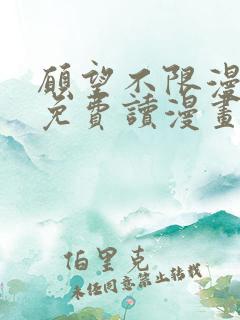 願望不限漫
免費讀漫畫
伯里克
未经同意禁止转载